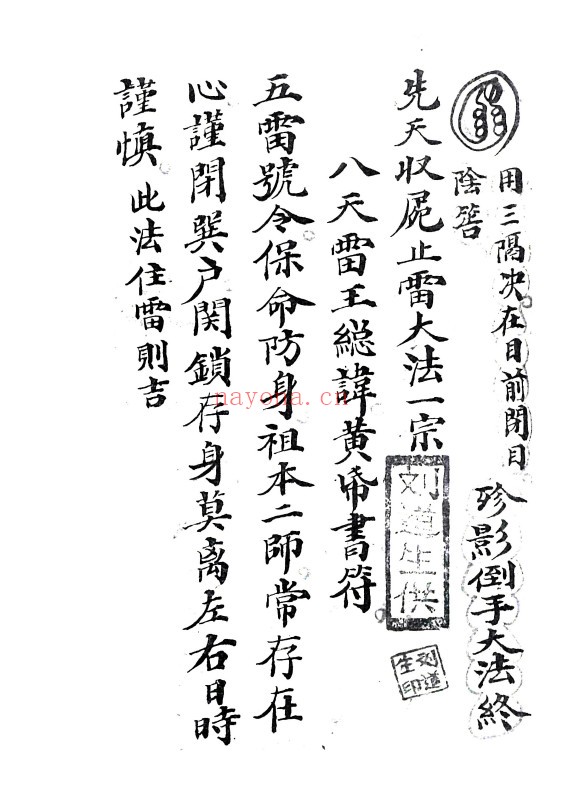 用三隅决在目前閉目
陰箬
殄影倒手大法終
先天収屍止雷大法一宗
刘道生供
刘道生印
八天雷王総諱黄帋書符
五雷號令保命防身祖本二師常存在
心謹閉巽户関鎖存身莫离左右日時
謹慎此法住雷則吉
nayona.cn